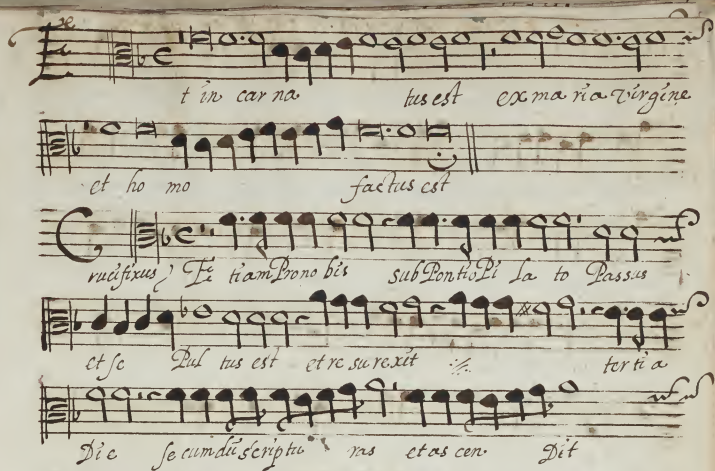 Et in car na tus est ex ma ria Virgine
et ho mo factus est
Crucifixus Et tiam Prono bis sub Pontio Pi la to Passus
et se Pul tus est et re su rexit ter ti a
Di e se cundũ scriptu ras et as cen Dit